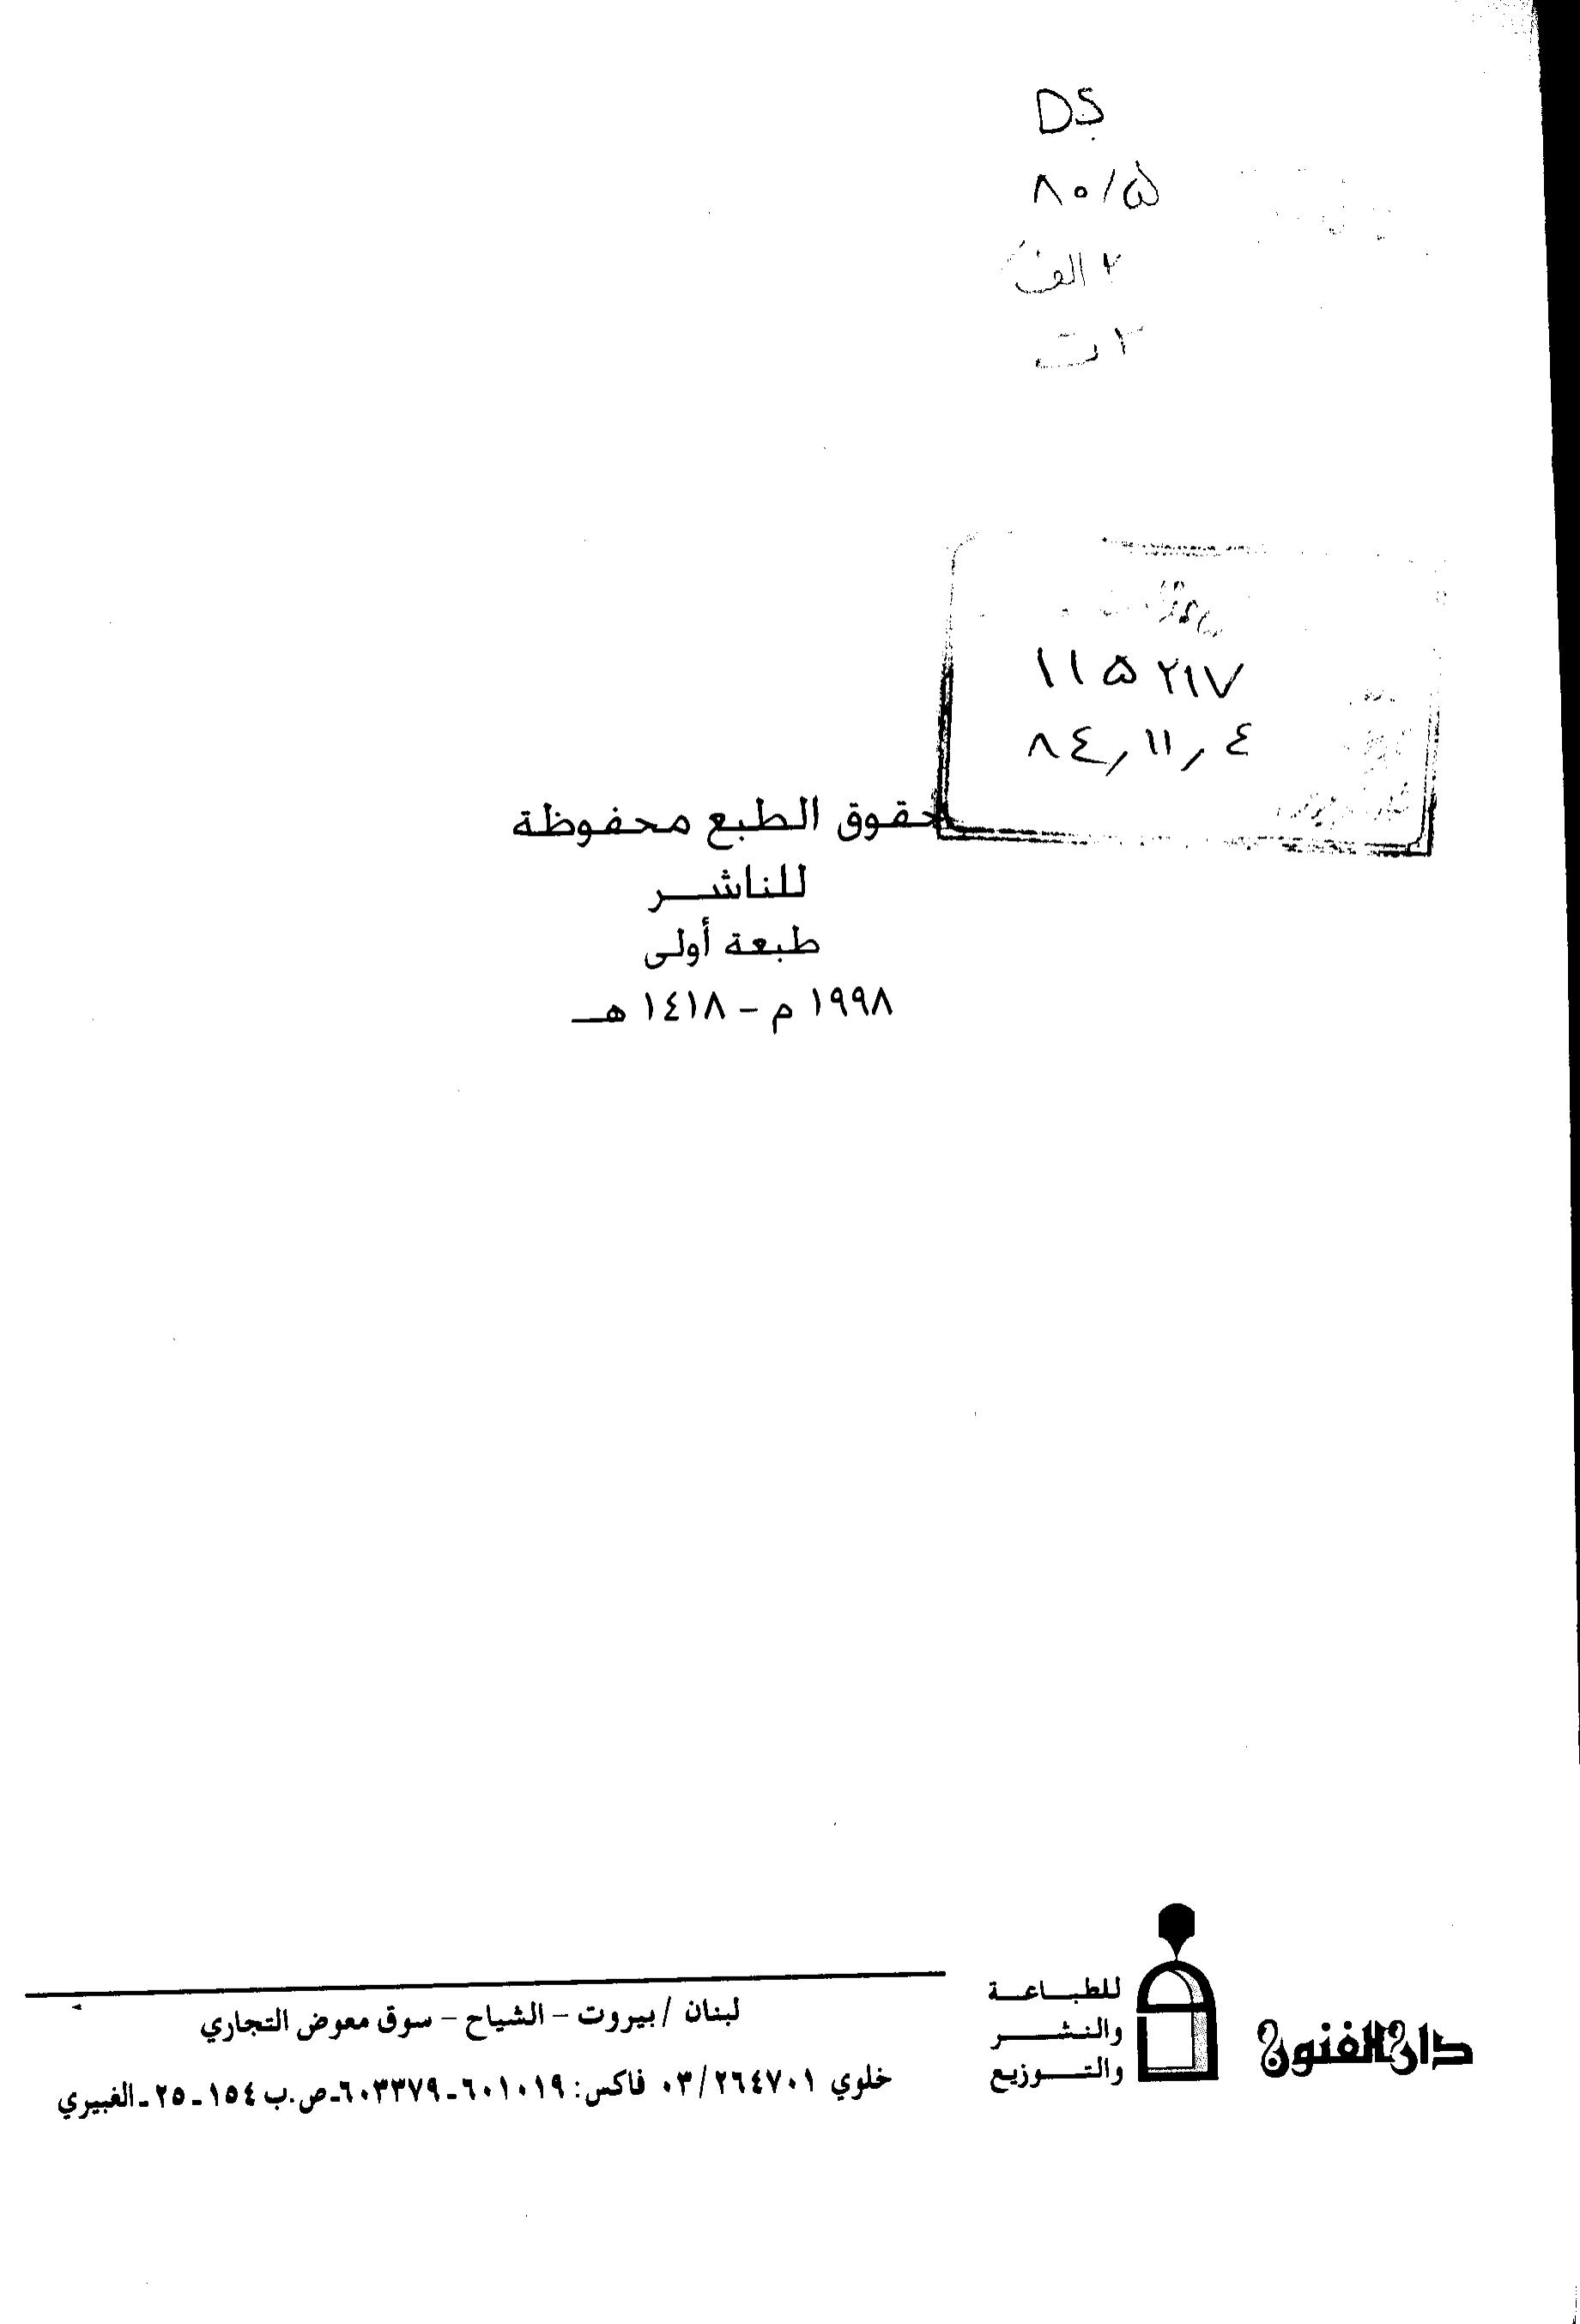 DS
٨٠/۵
٢ الف
٢ ت
١١۵٢١٧
٨٤ر١١ر٤
حقوق الطبع محفوظة
للناشــــر
طبعة أولى
١٩٩٨ م - ١٤١٨ هـ
دار الفنون
للطبــاعــة
والنشــــر
والتــــوزيع
لبنان / بيروت - الشياح - سوق معوض التجاري
خلوي ٠٣/٢٦٤٧٠١ فاكس: ٦٠١٠١٩ـ٦٠٣٣٧٩ـ ص.ب ١٥٤ ـ ٢٥ ـ الغبيري